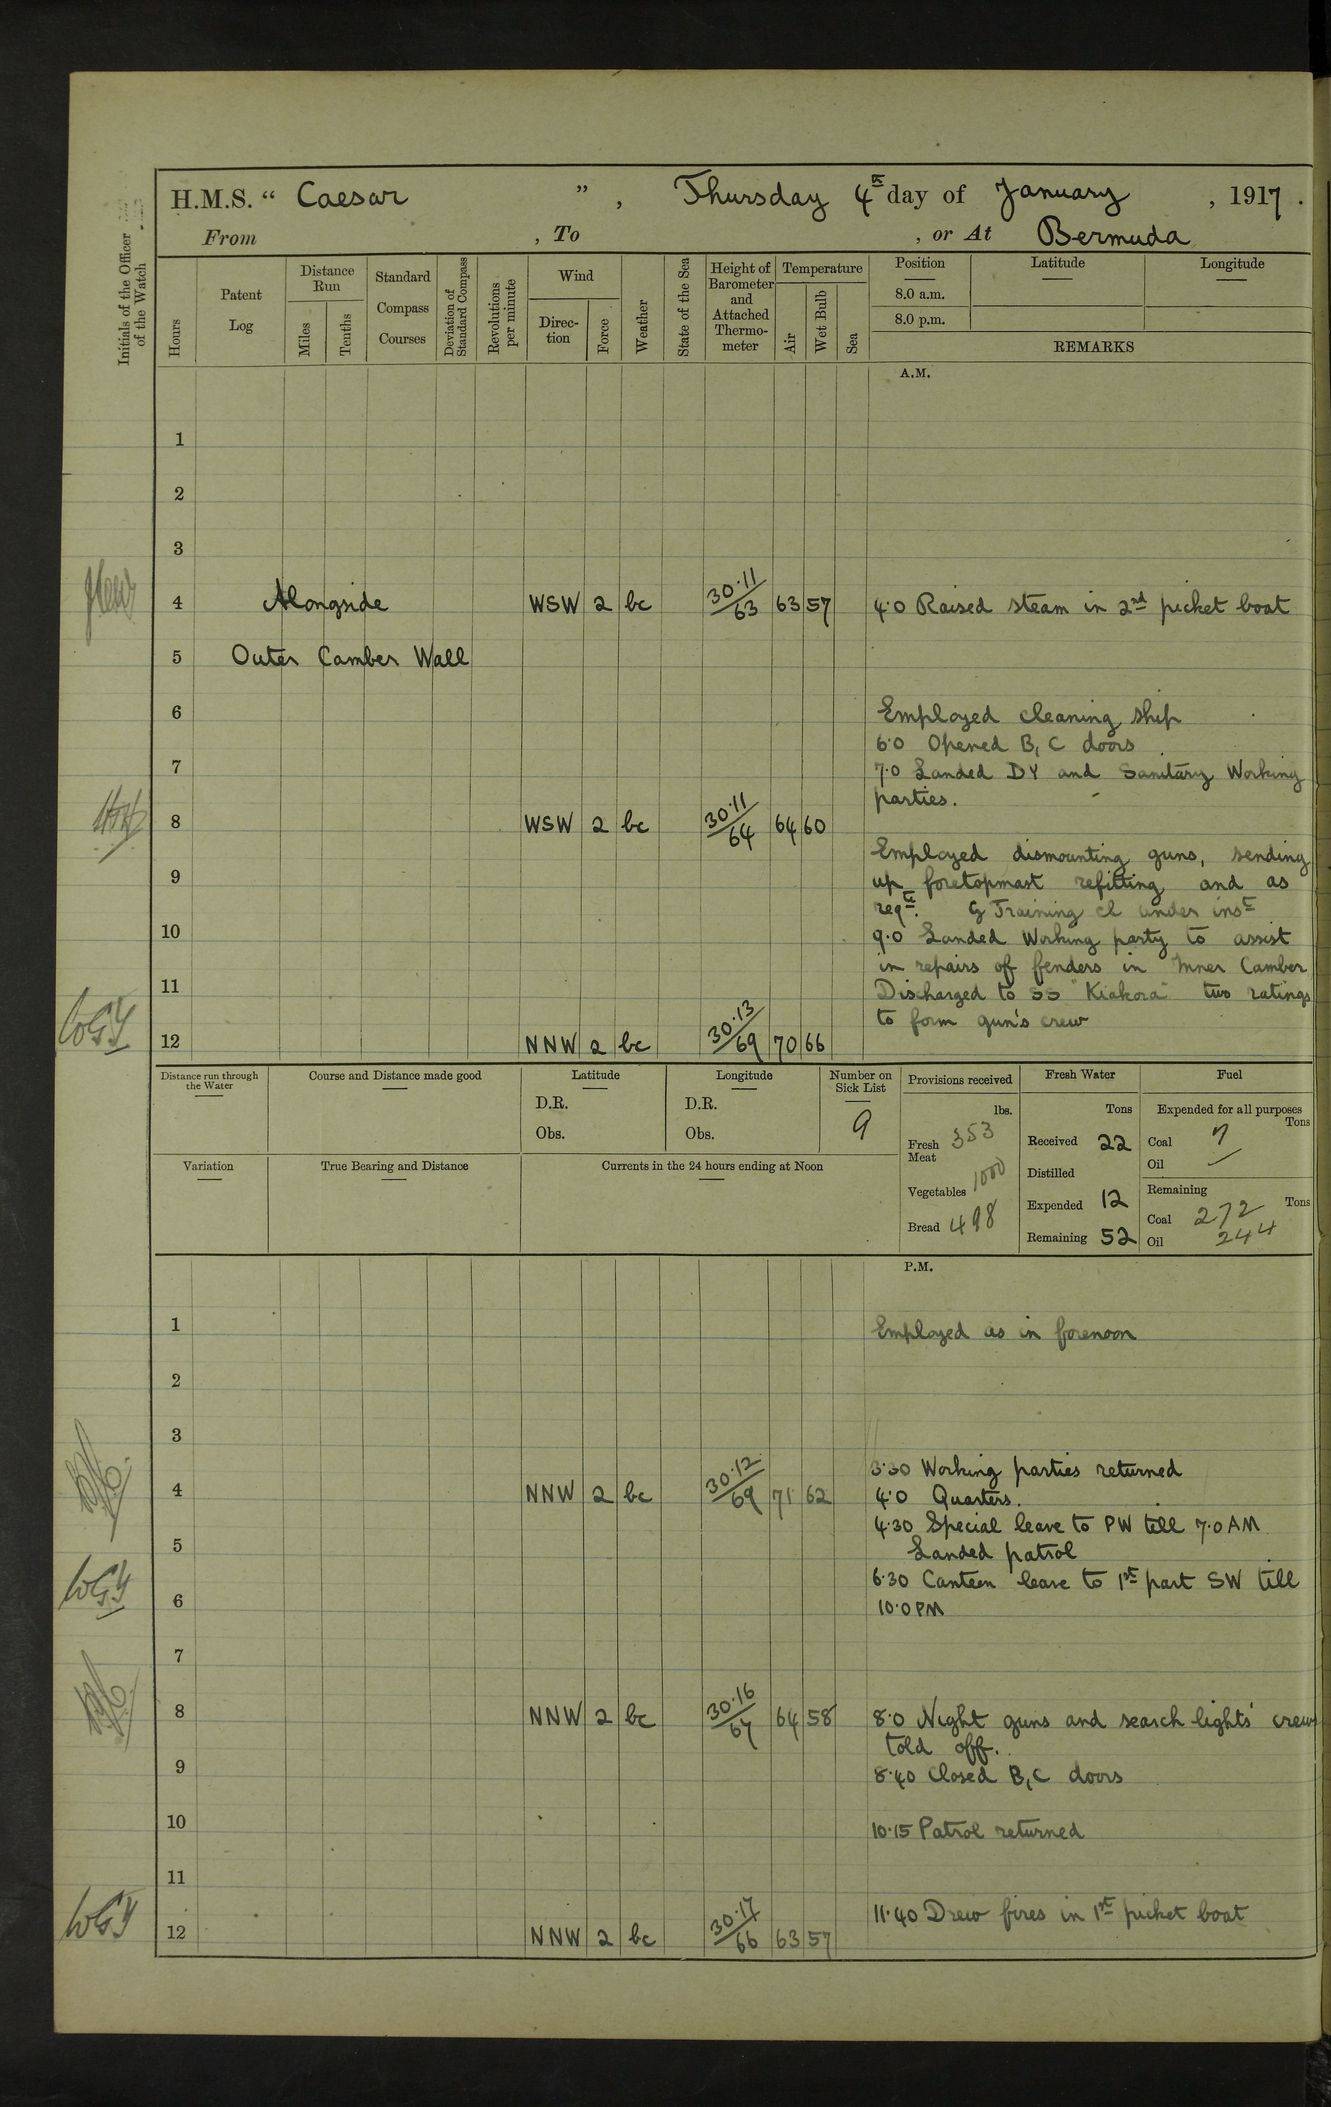 H.M.S. “ Caesar ”, Thursday 4th day of January, 1917.
From , To , or At Bermuda
Initials of the Officer of the Watch
Hours
Patent Log
Distance Run
Miles
Tenths
Standard Compass Courses
Deviation of Standard Compass
Revolutions per minute
Wind
Direc-tion
Force
Weather
State of the Sea
Height of Barometer and Attached Thermo-meter
Temperature
Air
Wet Bulb
Sea
Position Latitude Longitude
8.0 a.m.
8.0 p.m.
REMARKS
A.M.
1
2
3
4 Alongside WSW 2 bc 30.11/63 63 57 4.0 Raised steam in 2nd picket boat
5 Outer Camber Wall
6 Employed cleaning ship
6.0 Opened B, C doors
7 7.0 Landed DY and Sanitary Working
parties.
8 WSW 2 bc 30.11/64 64 60
Employed dismounting guns, sending
9 up foretopmast refitting and as
reqte. G Training cl under inst
10 9.0 Landed Working party to assist
in repairs of fenders in Inner Camber
11 Discharged to SS "Kiakora" two ratings
to form gun's crew
12 NNW 2 bc 30.13/69 70 66
WGY
Distance run through the Water
Course and Distance made good
Latitude
D.R.
Obs.
Longitude
D.R.
Obs.
Number on Sick List
9
Provisions received
lbs.
Fresh Meat 353
Vegetables 1000
Bread 498
Fresh Water
Tons
Received 22
Distilled
Expended 12
Remaining 52
Fuel
Expended for all purposes
Tons
Coal 7
Oil
Remaining
Tons
Coal 272
Oil 244
Variation
True Bearing and Distance
Currents in the 24 hours ending at Noon
P.M.
1 Employed as in forenoon
2
3
3.30 Working parties returned
4 NNW 2 bc 30.12/69 71 62 4.0 Quarters.
4.30 Special leave to PW till 7.0 AM
5 Landed patrol
6.30 Canteen leave to 1st part SW till
6 10.0 PM
WGY
7
8 NNW 2 bc 30.16/67 64 58 8.0 Night guns and search lights' crews
told off.
9 8.40 Closed B, C doors
10 10.15 Patrol returned
11
11.40 Drew fires in 1st picket boat
12 NNW 2 bc 30.17/66 63 57
WGY